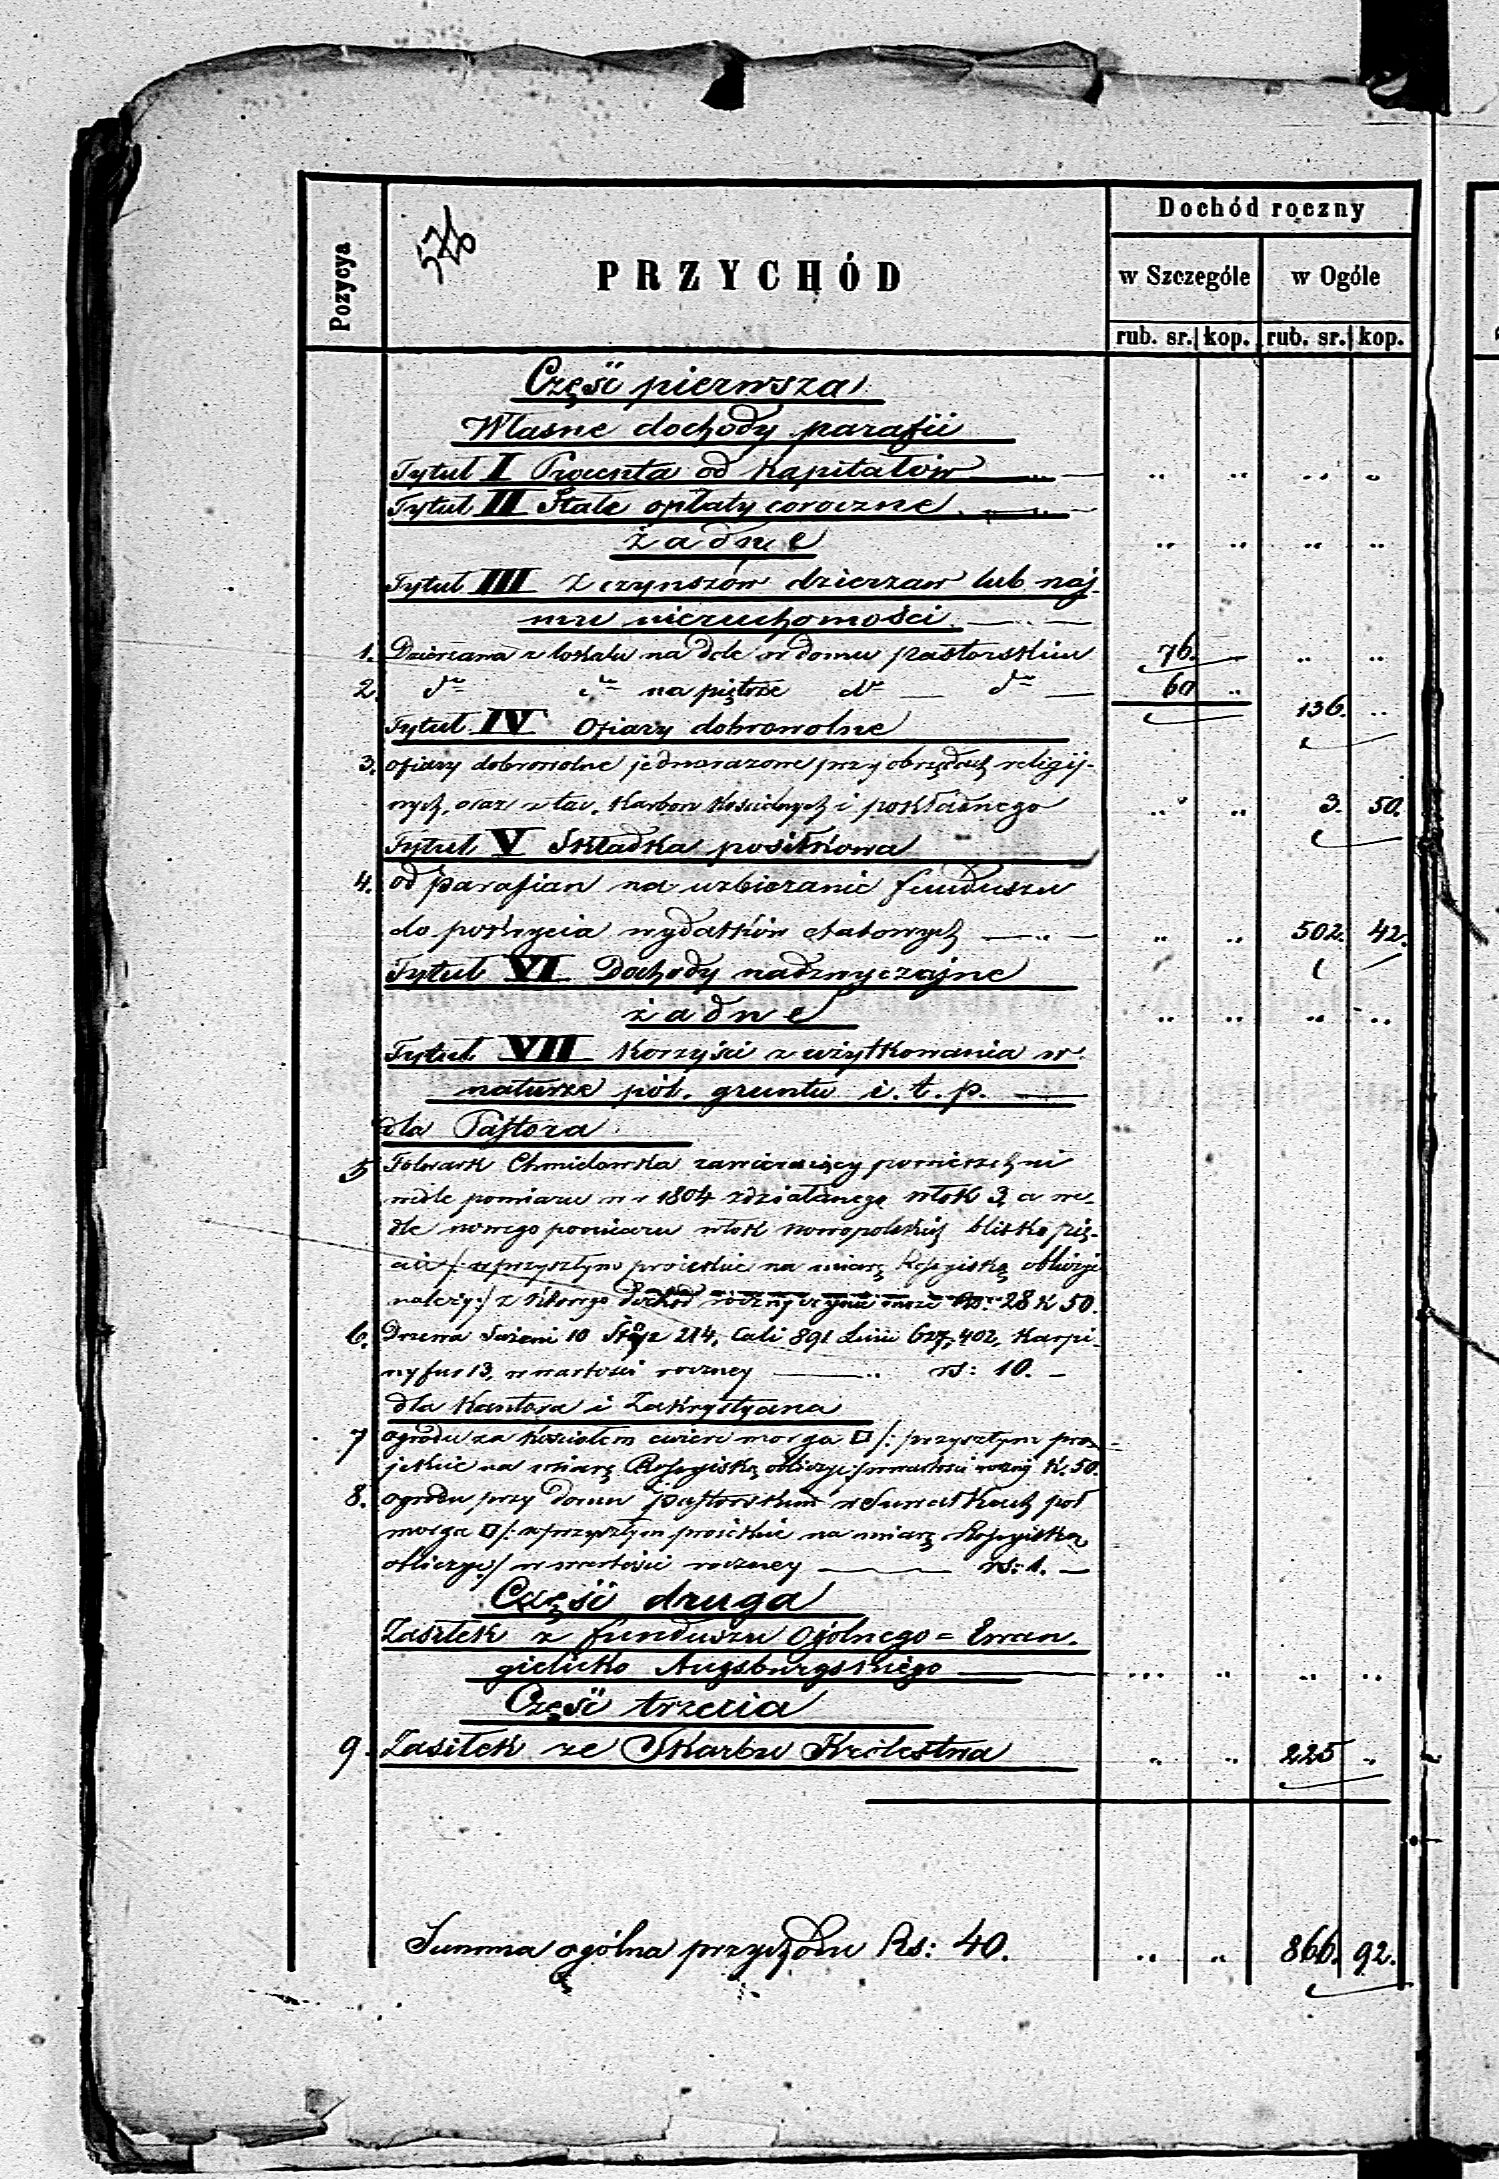 Pozycya
576
PRZYCHÓD
Dochód roczny
w Szczególe w Ogóle
rub. sr. kop. rub. sr. kop.
Część pierwsza
Własne dochody parafii
Tytuł I Procenta od Kapitałów
Tytuł II Stałe opłaty coroczne
żadne
Tytuł III Z czynszów dzierzaw lub naj-
mu nieruchomości
1. Dzierzawa z lokalu na dole w domu pastorskim 76.
2. dto dto na piętrze dto dto 60 136.
Tytuł IV Ofiary dobrowolne
3. ofiary dobrowolne jednorazowe przy obrzędach religij-
nych, oraz z tac, Karbon Kościelnych i pokładnego 3. 50.
Tytuł V Składka posiłkowa
4. od parafian na uzbieranie funduszu
do pokrycia wydatków etatowych 502. 42.
Tytuł VI Dochody nadzwyczajne
żadne
Tytuł VII Korzyści z użytkowania w
naturze pól, gruntu i. t. p.
dla Pastora
5 Folwark Chmielowska zawierający powierzchni
wedle pomiaru w r 1804 zdziałanego włok 3, a we-
dle nowego pomiaru włok nowopolskich blisko pię-
ciu /: w przyszłym projekcie na miarę Rossyiską obliczyć
należy:/ z którego dochód roczny czynić może Rs: 28 k 50.
6. Drzewa Sążeni 10 Stóp 214, Cali 891 Linii 627,402, Karpi-
ny fur 13, w wartości roczney rs: 10. -
dla Kantora i Zakrystyana
7 ogrodu za Kościołem ćwierć morga □ /: przyszłym pro-
jekcie na miarę Rossyiską obliczyć:/ w wartości roczniej K. 50.
8. ogrodu przy domu pastorskim w Suwałkach pół
morga □ /: w przyszłym projekcie na miarę Rossyiską
obliczyć:/ w wartości roczney rs: 1. -
Część druga
Zasiłek z funduszu Ogólnego = Ewan-
gielicko Augsburgskiego
Część trzecia
9. Zasiłek ze Skarbu Królestwa 225
Summa ogólna przychodu Rs: 40. 866. 92.